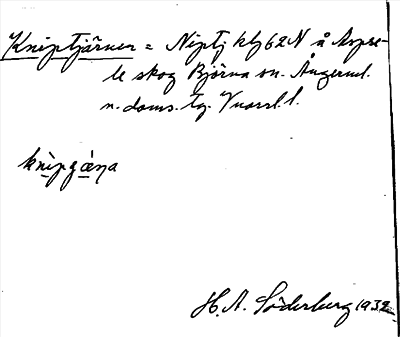 Kniptjärnen = Niptj kbl 62N å Aspse-
le skog Björna sn. Ångerml.
n. doms. tg. V norrl. l.
knìpgæ̀ṇa
H. A. Söderberg 1932